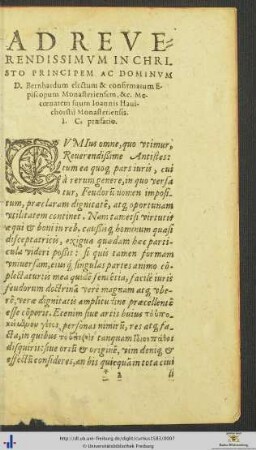 AD REVE-
RENDISSIMVM IN CHRI
STO PRINCIPEM AC DOMINVM
D. Bernhardum electum & confirmatum E-
piscopum Monasteriensem, &c. Me-
cœnatem suum Ioannis Haui-
chorstii Monasteriensis
I. C. præfatio.
CVM Ius omne, quo vtimur,
Reuerendissime Antistes:
tum ea quoq; pars iuris, cui
à rerum genere, in quo versa
tur, Feudorum nomen imposi-
tum, præclaram dignitatẽ, atq; oportunam
vtilitatem continet. Nam tametsi virtutis
æqui & boni in reb. causisq; hominum quasi
disceptatricis, exigua quædam hæc parti-
cula videri possit: si quis tamen formam
vniuersam, eiusq; singulas partes animo cõ-
plectatur
feudorum doctrinã vere magnam atq; vbe-
rẽ, veræ dignitatis amplitudine præcellentẽ
esse cõperit. Etenim siue artis huius
personas nimirũ, res atq; fa-
cta, in quibus tanquam
disquirit: siue ortũ & originẽ, vim deniq; &
effectũ consideres, an bis quicquam in tota ciui
li
http://dl.ub.uni-freiburg.de/diglit/curtius1583/0007
© Universitätsbibliothek Freiburg